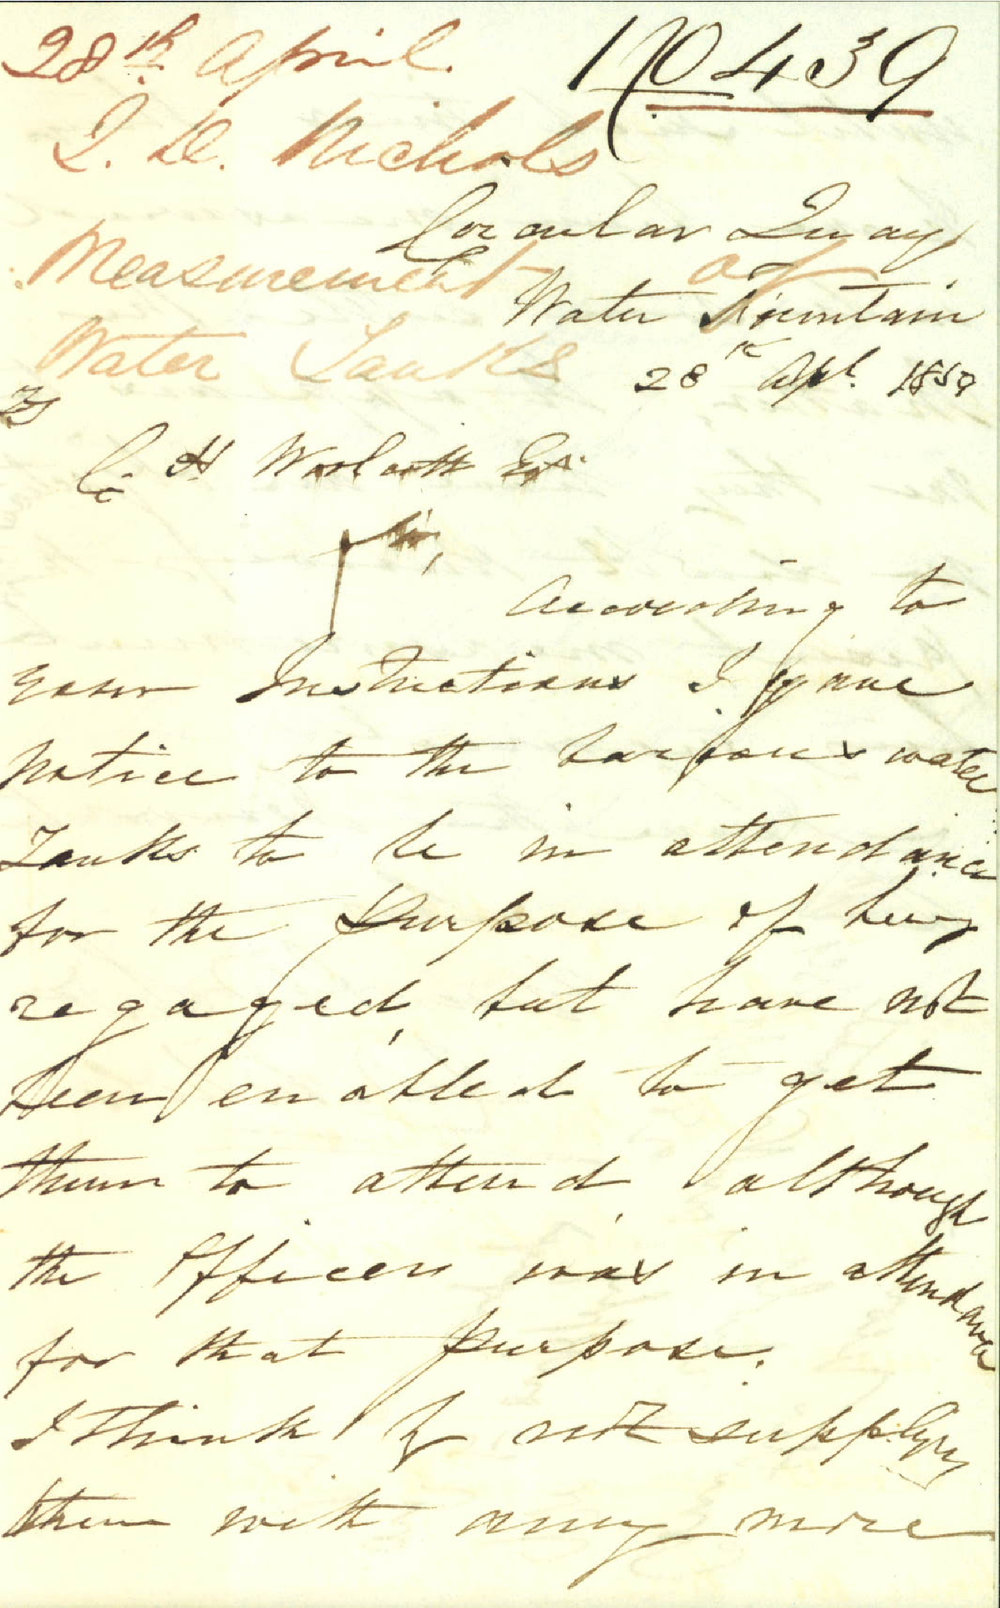 28th April.
No 439
J. D. Nichols
Circular Quay
Measurement of
Water Fountain
Water Tanks
28th Apl. 1859
C. H. Woolcott Esq.
Sir,
According to
your Instructions I gave
notice to the various water
Tanks to be in attendance
for the purpose of being
regaged, but have not
been enabled to get
them to attend, although
the Officer was in attendance
for that purpose.
I think by not supplying
them with any more